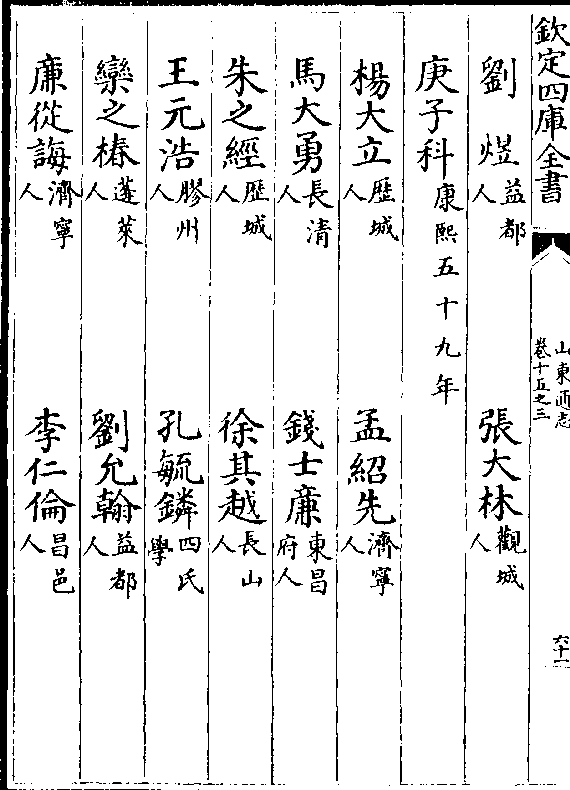 欽定四庫全書
山東通志
卷十五之三
六十一
劉煜益都人 張大林觀城人
庚子科康熙五十九年
楊大立歴城人 孟紹先濟寧人
馬大勇長清人 錢士廉東昌府人
朱之經歴城人 徐其越長山人
王元浩膠州人 孔毓鏻四氏學
欒之椿蓬萊人 劉允翰益都人
廉從誨濟寧人 李仁倫昌邑人